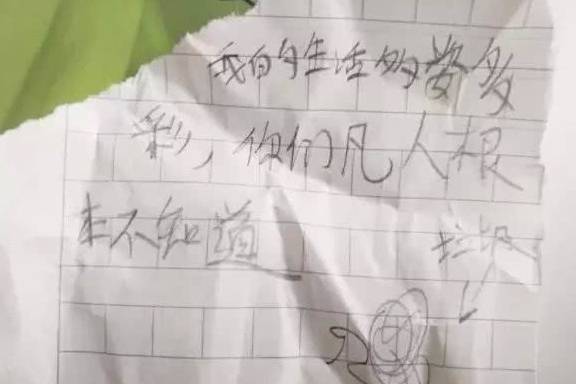 我的生活多姿多
彩，你们凡人根
本不知道
垃圾